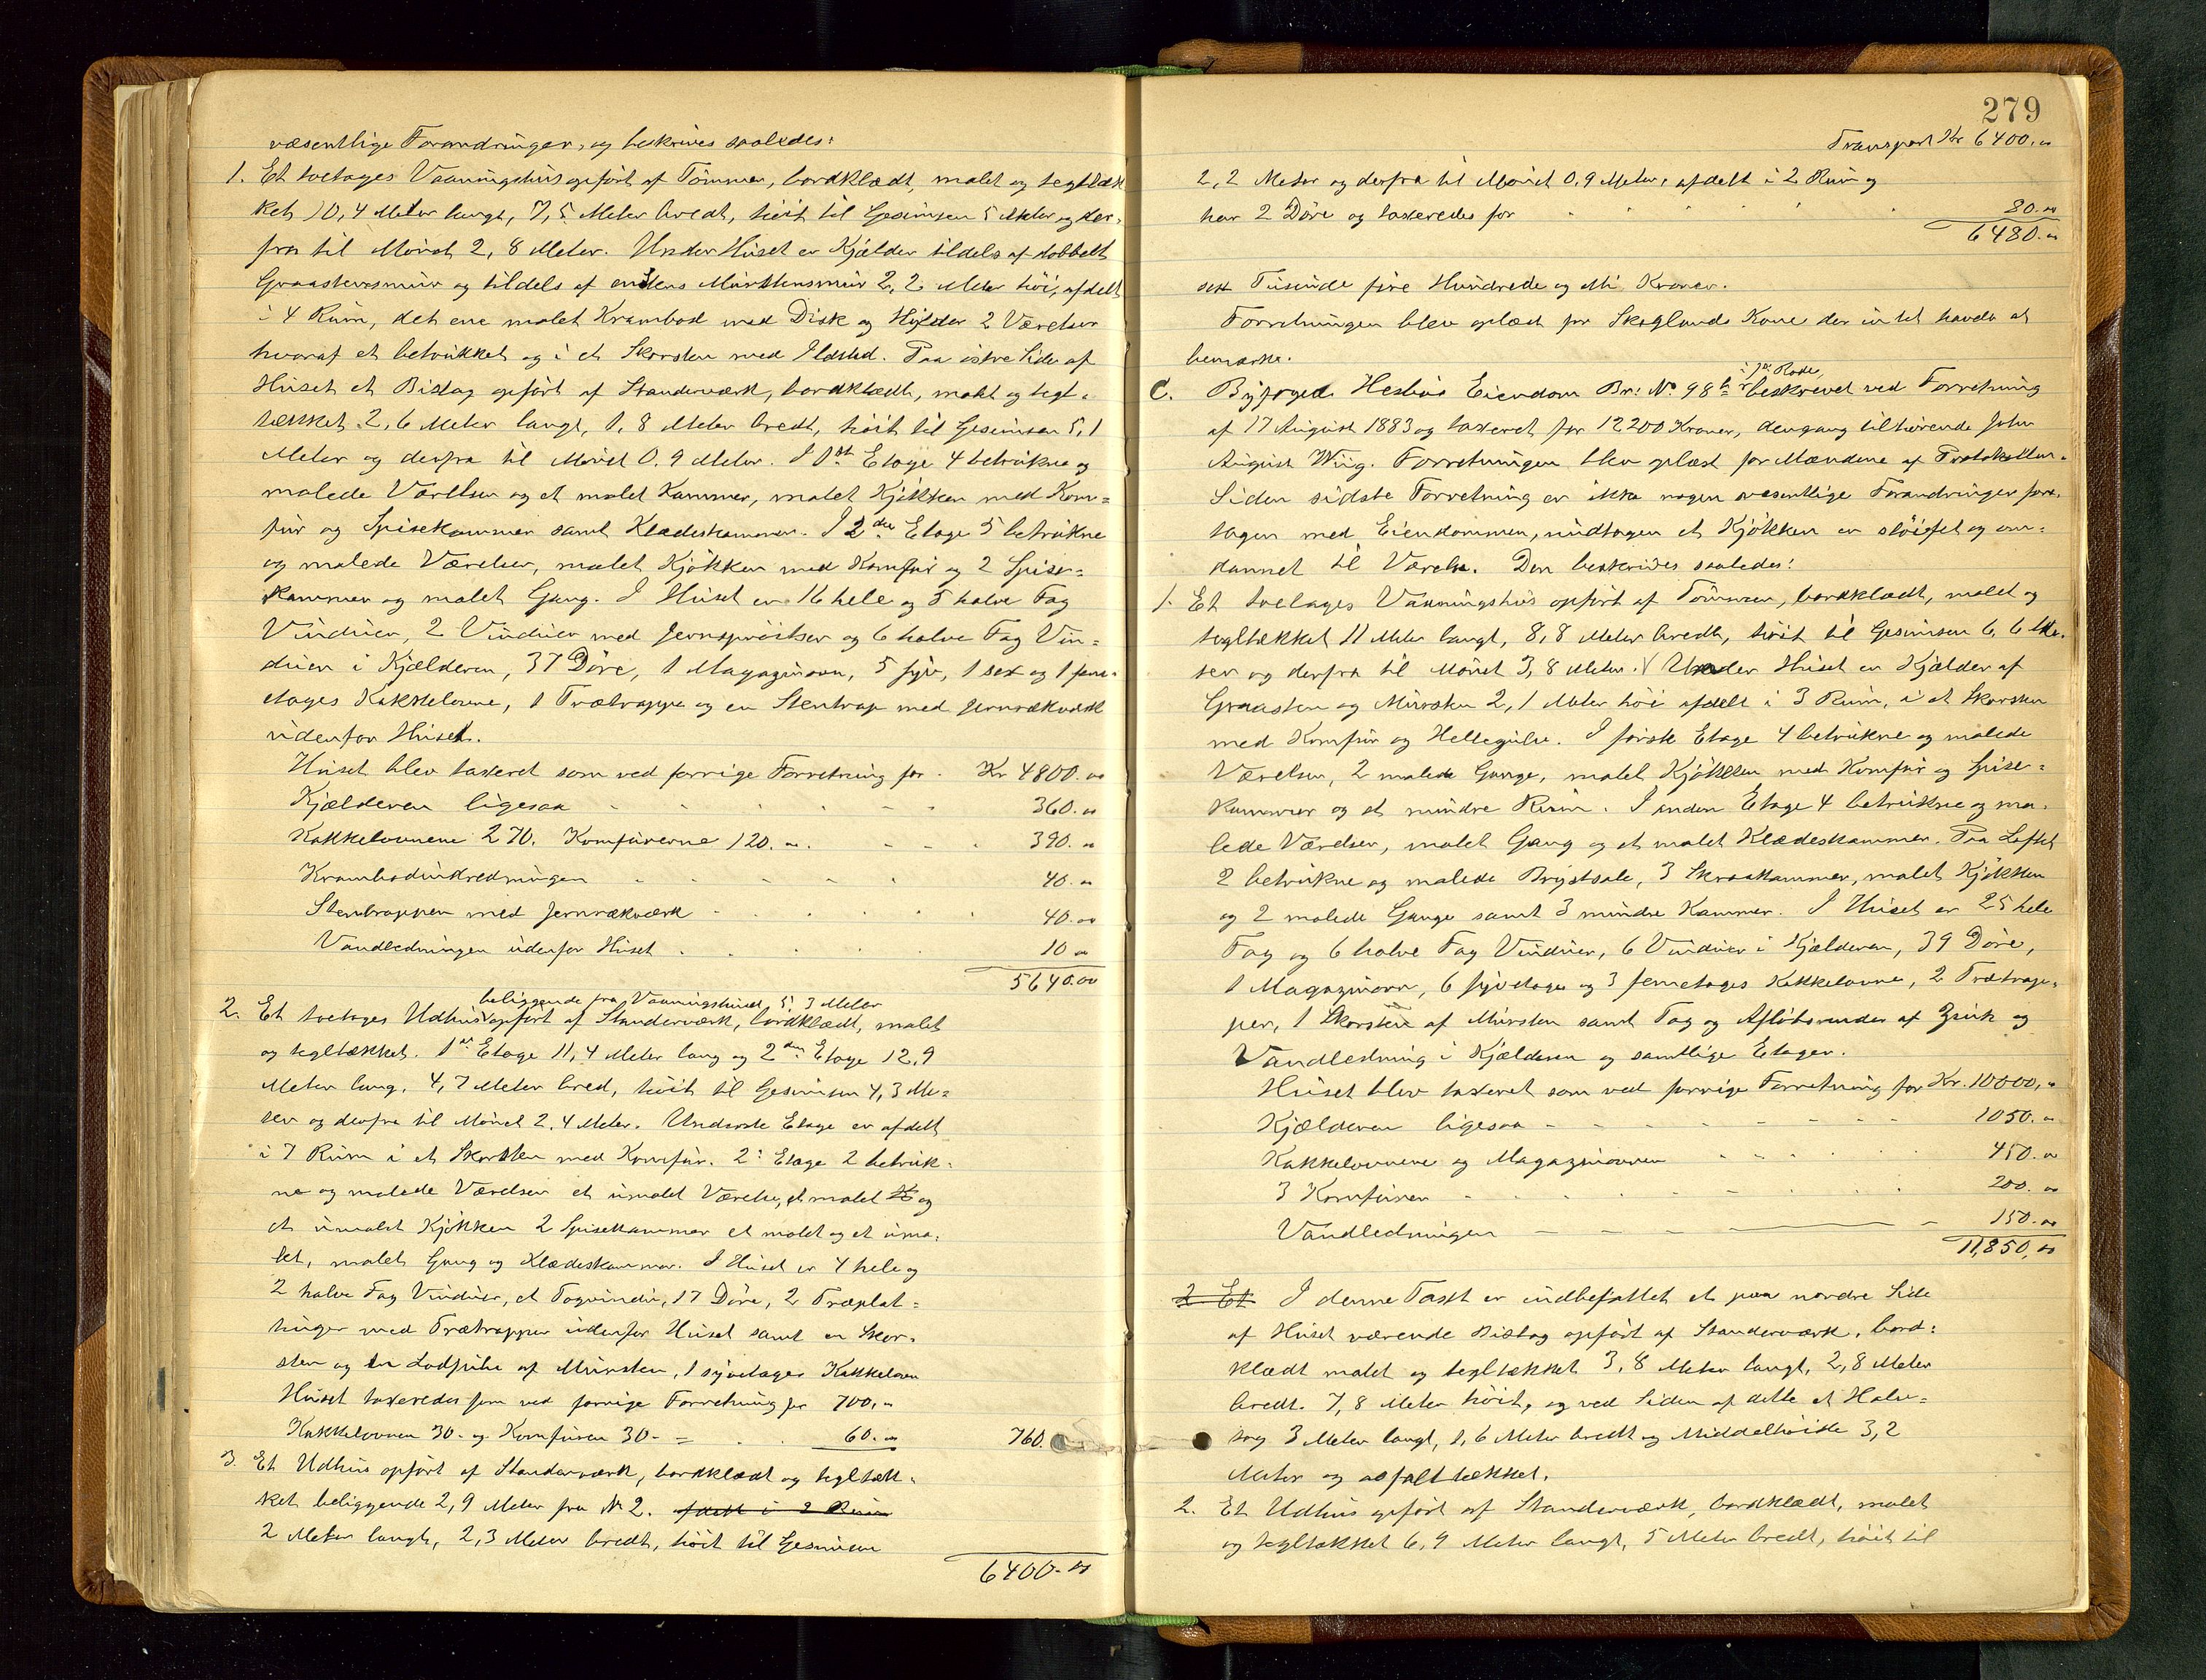 væsentlige Forandringer, og beskrives saaledes:
1. Et toetages Vaaningshus opført af Tømmer, bordklædt, malet og tegltæk
ket 10,4 Meter langt, 7,5 Meter bredt, høit til Gesimsen 5 Meter og der-
fra til Mønet 2,8 Meter. Under Huset er Kjælder tildels af dobbelt
Graastensmur og tildels af enstens Murstensmur 2,2 Meter høi, afdelt
i 4 Rum, det ene malet Krambod med Disk og Hylder 2 Værelser
hvoraf et betrukket og i et Skorsten med Ildsted. Paa østre Side af
Huset et Bislag opført af Standerværk, bordklædt, malet og tegl-
tækket 2,6 Meter langt, 1,8 Meter bredt, høit til Gesimsen 5,1
Meter og derfra til Mønet 0.9 Meter. I 1ste Etage 4 betrukne og
malede Værelser og et malet Kammer, malet Kjøkken med Kom=
fur og Spisekammer samt Klædeskammer. I 2den Etage 5 betrukne
og malede Værelser, malet Kjøkken med Komfur og 2 Spise=
kammer og malet Gang. I Huset er 16 hele og 5 halve Fag
Vinduer, 2 Vinduer med Jernsprosser og 6 halve Fag Vin=
duer i Kjælderen, 37 Døre, 1 Magazinovn, 5 syv, 1 sex og 1 fem-
etages Kakkelovne, 1 Trætrappe og en Stentrap med Jernrækværk
udenfor Huset.
Huset blev taxeret som ved forrige Forretning for . Kr 4800.00
Kjælderen ligesaa 360.00
Kakkelovnene 270. Komfurerne 120.00. 390.00
Krambodindredningen 40.00
Stentrappen med Jernrækværk 40.00
Vandledningen udenfor Huset 10 00
5640.00
beliggende fra Vaaningshuset 5,3 Meter
2. Et toetages Udhus opført af Standerværk, bordklædt, malet
og tegltækket. 1ste Etage 11,4 Meter lang og 2den Etage 12,9
Meter lang. 4,7 Meter bred, høit til Gesimsen 4,3 Me=
ter og derfra til Mønet 2,4 Meter. Underste Etage er afdelt
i 7 Rum i et Skorsten med Komfur. 2: Etage 2 betruk=
ne og malede Værelser et umalet Værelse, et malet og
et umalet Kjøkken 2 Spisekammer et malet og et uma-
let, malet Gang og Klædeskammer. I Huset er 4 hele og
2 halve Fag Vinduer, et Tagvindu, 17 Døre, 2 Træplat=
tinger med Trætrapper udenfor Huset samt en Skor-
sten og en Lodpibe af Mursten, 1 syvetages Kakkelovn
Huset taxeredes som ved forrige Forretning for 700.00
Kakkelovnen 30- og Komfuren 30- = 60.00 760.
3. Et Udhus opført af Standerværk, bordklædt og tegltæk-
ket beliggende 2,9 Meter fra No 2. afdelt i 2 Rum
2 Meter langt, 2,3 Meter bredt, høit til Gesimsen
6400.00
279
Transport Kr 6400.00
2,2 Meter og derfra til Mønet 0,9 Meter, afdelt i 2 Rum og
har 2 Døre og taxeredes for 80.00
6480.00
sex Tusinde fire Hundrede og Kroner.
Forretningen blev oplæst for Skoglands Kone der intet havde at
bemærke.
i 7de Rode,
C. Byfoged Hesbus Eiendom Br: No 98b beskrevet ved Forretning
af 17 August 1883 og taxeret for 12200 Kroner, dengang tilhørende John
August Wiig. Forretningen blev oplæst for Mændene af Protokollen.
Siden sidste Forretning er ikke nogen væsentlige Forandringer fore-
tagen med Eiendommen, undtagen et Kjøkken er sløifet og om=
dannet til Værelse. Den beskrives saaledes:
1. Et toetages Vaaningshus opført af Tømmer, bordklædt, malet og
tegltækket 11 Meter langt, 8,8 Meter bredt, høit til Gesimsen 6,6 Me-
ter og derfra til Mønet 3,8 Meter. Under Huset er Kjælder af
Graasten og Mursten 2,1 Meter høi afdelt i 3 Rum, i et Skorsten
med Komfur og Hellegulv. I første Etage 4 betrukne og malede
Værelser, 2 malede Gange, malet Kjøkken med Komfur og Spise=
kammer og et mindre Rum. I anden Etage 4 betrukne og ma-
lede Værelser, malet Gang og et malet Klædeskammer. Paa Loftet
2 betrukne og malede Brystsale, 3 Skraakammer, malet Kjøkken
og 2 malede Gange samt 3 mindre Kammer. I Huset er 25 hele
Fag og 6 halve Fag Vinduer, 6 Vinduer i Kjælderen, 39 Døre,
1 Magazinovn, 6 syvetages og 3 femetages Kakkelovne, 2 Trætrap-
per, 1 Skorsten af Mursten samt Tag og Afløbsrender af Zink og
Vandledning i Kjælderen og samtlige Etager.
Huset blev taxeret som ved forrige Forretning for Kr. 10000,00
Kjælderen ligesaa 1050.00
Kakkelovnene og Magazinovnen 450.00
3 Komfurer 200.00
Vandledningen 150.00
11,850,00
2 Et I denne Taxt er indbefattet et paa nordre Side
af Huset værende Bislag opført af Standerværk, bord=
klædt malet og tegltækket 3,8 Meter langt, 2,8 Meter
bredt. 7,8 Meter høit, og ved Siden af dette et Halv=
tag 3 Meter langt, 1,6 Meter bredt og Middelhøide 3,2
Meter og asfalttækket.
2. Et Udhus opført af Standerværk, bordklædt, malet
og tegltækket 6,9 Meter langt, 5 Meter bredt, høit til